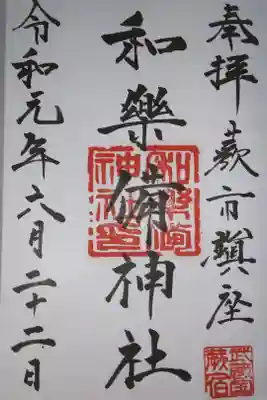 奉拝 蕨市鎮座
和樂備神社
和樂備神社印
武蔵国蕨宿
令和元年六月二十二日